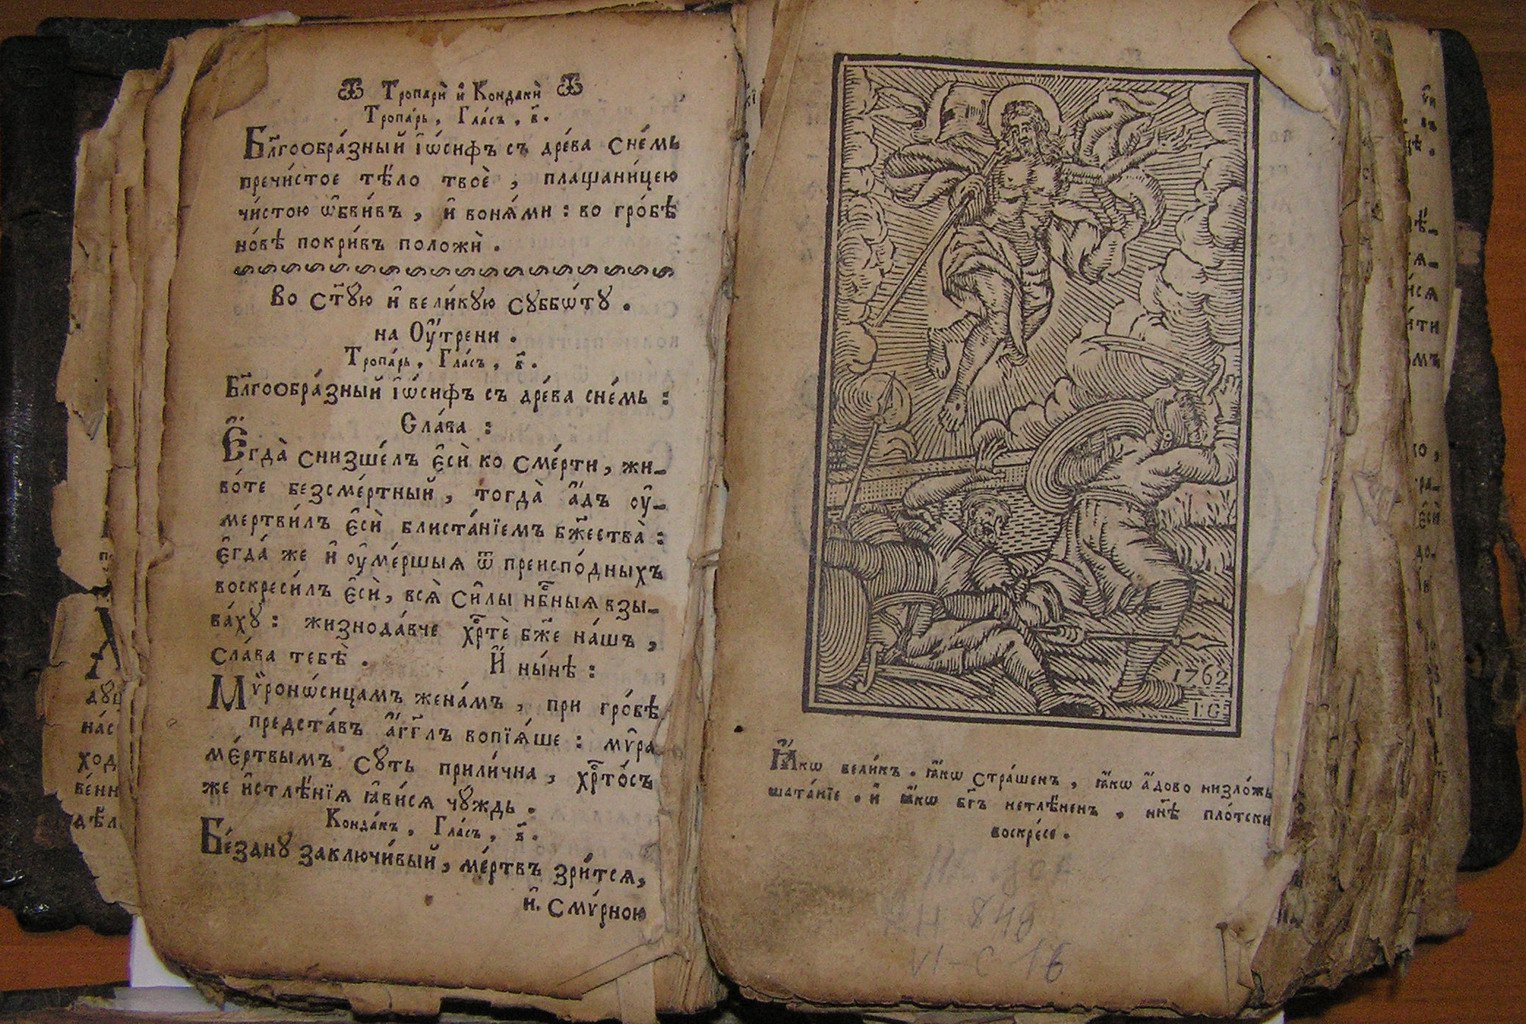 Тропарѝ и҆ Кондакѝ
Тропа́рь, Гла́съ, в҃.
Бл҃гообра́зный і҆ѡ́сифъ съ дре́ва сне́мь
пречи́стое тѣ́ло твоѐ, плащани́цею
чи́стою ѡ҆бви́въ, и҆ воня́ми: во гро́бѣ
но́вѣ покри́въ положѝ.
Во ст҃ꙋю и҆ вели́кꙋю сꙋббѡ́тꙋ.
на Оу҆́трени.
Тропа́рь, Гла́съ, в҃.
Бл҃гообра́зный і҆ѡ́сифъ съ дре́ва сне́мь:
Сла́ва:
Є҆гда̀ снизше́лъ є҆сѝ ко сме́рти, жи-
воте безсме́ртный, тогда̀ а҆́дъ оу҆-
мертви́лъ є҆сѝ блиста́нїемъ бж҃ества̀:
є҆гда́ же и҆ оу҆ме́ршыѧ ѿ преиспо́дныхъ
воскреси́лъ є҆сѝ, всѧ̀ си̑лы нбⷭ҇ныѧ взы-
ва́хꙋ: жизнода́вче хрⷭ҇тѐ бж҃е на́шъ,
сла́ва тебѣ̀. И҆ ны́нѣ:
Мѵ҆ронѡ́сицамъ жена́мъ, при гро́бѣ
предста́въ а҆́гг҃лъ вопїѧ́ше: мѵ́ра
ме́ртвымъ сꙋ́ть прили́чна, хрⷭ҇то́съ
же и҆стлѣ́нїѧ ꙗ҆ви́сѧ чꙋ́ждь.
Конда́къ, Гла́съ, в҃.
Бе́зднꙋ заключи́вый, ме́ртвъ зри́тсѧ,
и҆. Смѵ́рною
1762
I G
Ꙗ҆́кѡ вели́къ. ꙗ҆́кѡ стра́шенъ, ꙗ҆́кѡ а҆́дово низло́жь
шата́нїе. и҆ ꙗ҆́кѡ бг҃ъ нетлѣ́ненъ, нн҃ѣ пло́тски
воскре́се.
849
VI-C 16